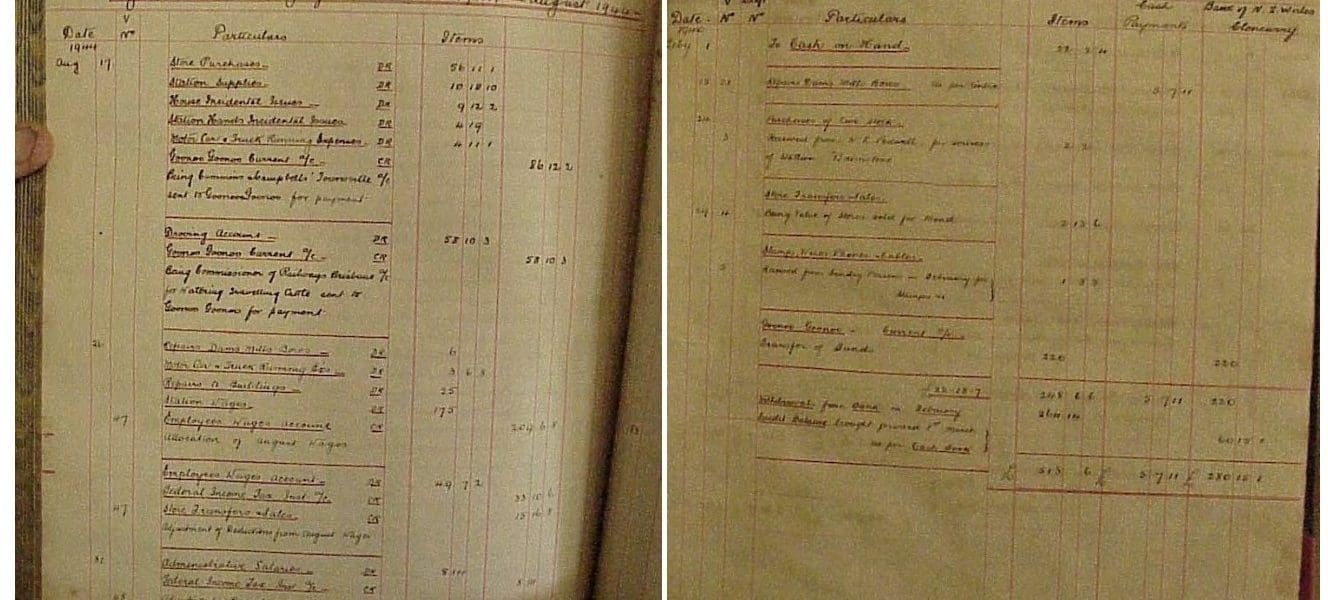 August 1944
Date V Nº Particulars Items
1944
Aug 17 Store Purchases DR 56 11 1
Station Supplies DR 10 18 10
House Incidental Issues DR 9 12 2
Station Hands Incidental Issues DR 4 19
Motor Car & Truck Running Expenses DR 4 11 1
Goonoo Goonoo Current a/c CR 86 12 2
Being Cummins & Campbells' Townsville a/c
sent to Goonoo Goonoo for payment
Droving Account DR 58 10 3
Goonoo Goonoo Current a/c CR 58 10 3
Being Commissioner of Railways Brisbane a/c
for Watering Travelling Cattle sent to
Goonoo Goonoo for payment
Repairs Dams Mills Bores DR 6
Motor Car & Truck Running Exs DR 3 6 8
Repairs to Buildings DR 25
Station Wages DR 175
47 Employees Wages Account CR 209 6 8
Allocation of August Wages
Employees Wages Account DR 49 7 2
Federal Income Tax Inst a/c CR 33 10 6
47 Store Transfers & Sales CR 15 16 8
Adjustment of Deductions from August Wages
31 Administrative Salaries DR
Federal Income Tax Inst a/c CR
Cash Bank of N. S. Wales
Date Nº Nº Particulars Items Payments Cloncurry
Feby 1 To Cash on Hand 22 2 4
Repairs Dams Mills Bores 5 7 11
Purchases of Live Stock
3 Received from
of Stallion
Store Transfers & Sales
4 Being Value of Stores sold for Month 2 15 6
Received from Sundry Persons in February for
Stamps &c
Goonoo Goonoo Current a/c
Transfer of Funds 220 220
£22-18-7 248 6 6 5 7 11 220
Withdrawals from Bank in February 264 14
Credit Balance brought forward 1st March 60 15 1
as per Cash Book
£ 513 6 £ 5 7 11 £ 280 15 1